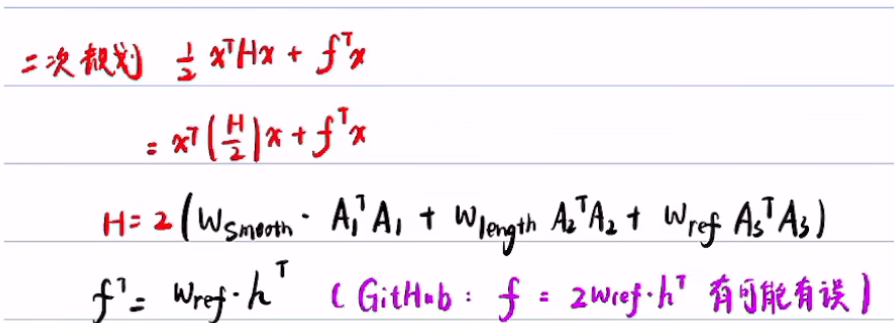 二次规划 ½ xᵀHx + fᵀx
= xᵀ(H/2)x + fᵀx
H = 2(w_smooth · A₁ᵀA₁ + w_length A₂ᵀA₂ + w_ref A₃ᵀA₃)
fᵀ = w_ref · hᵀ (GitHub : f = 2w_ref · hᵀ 有可能有误)